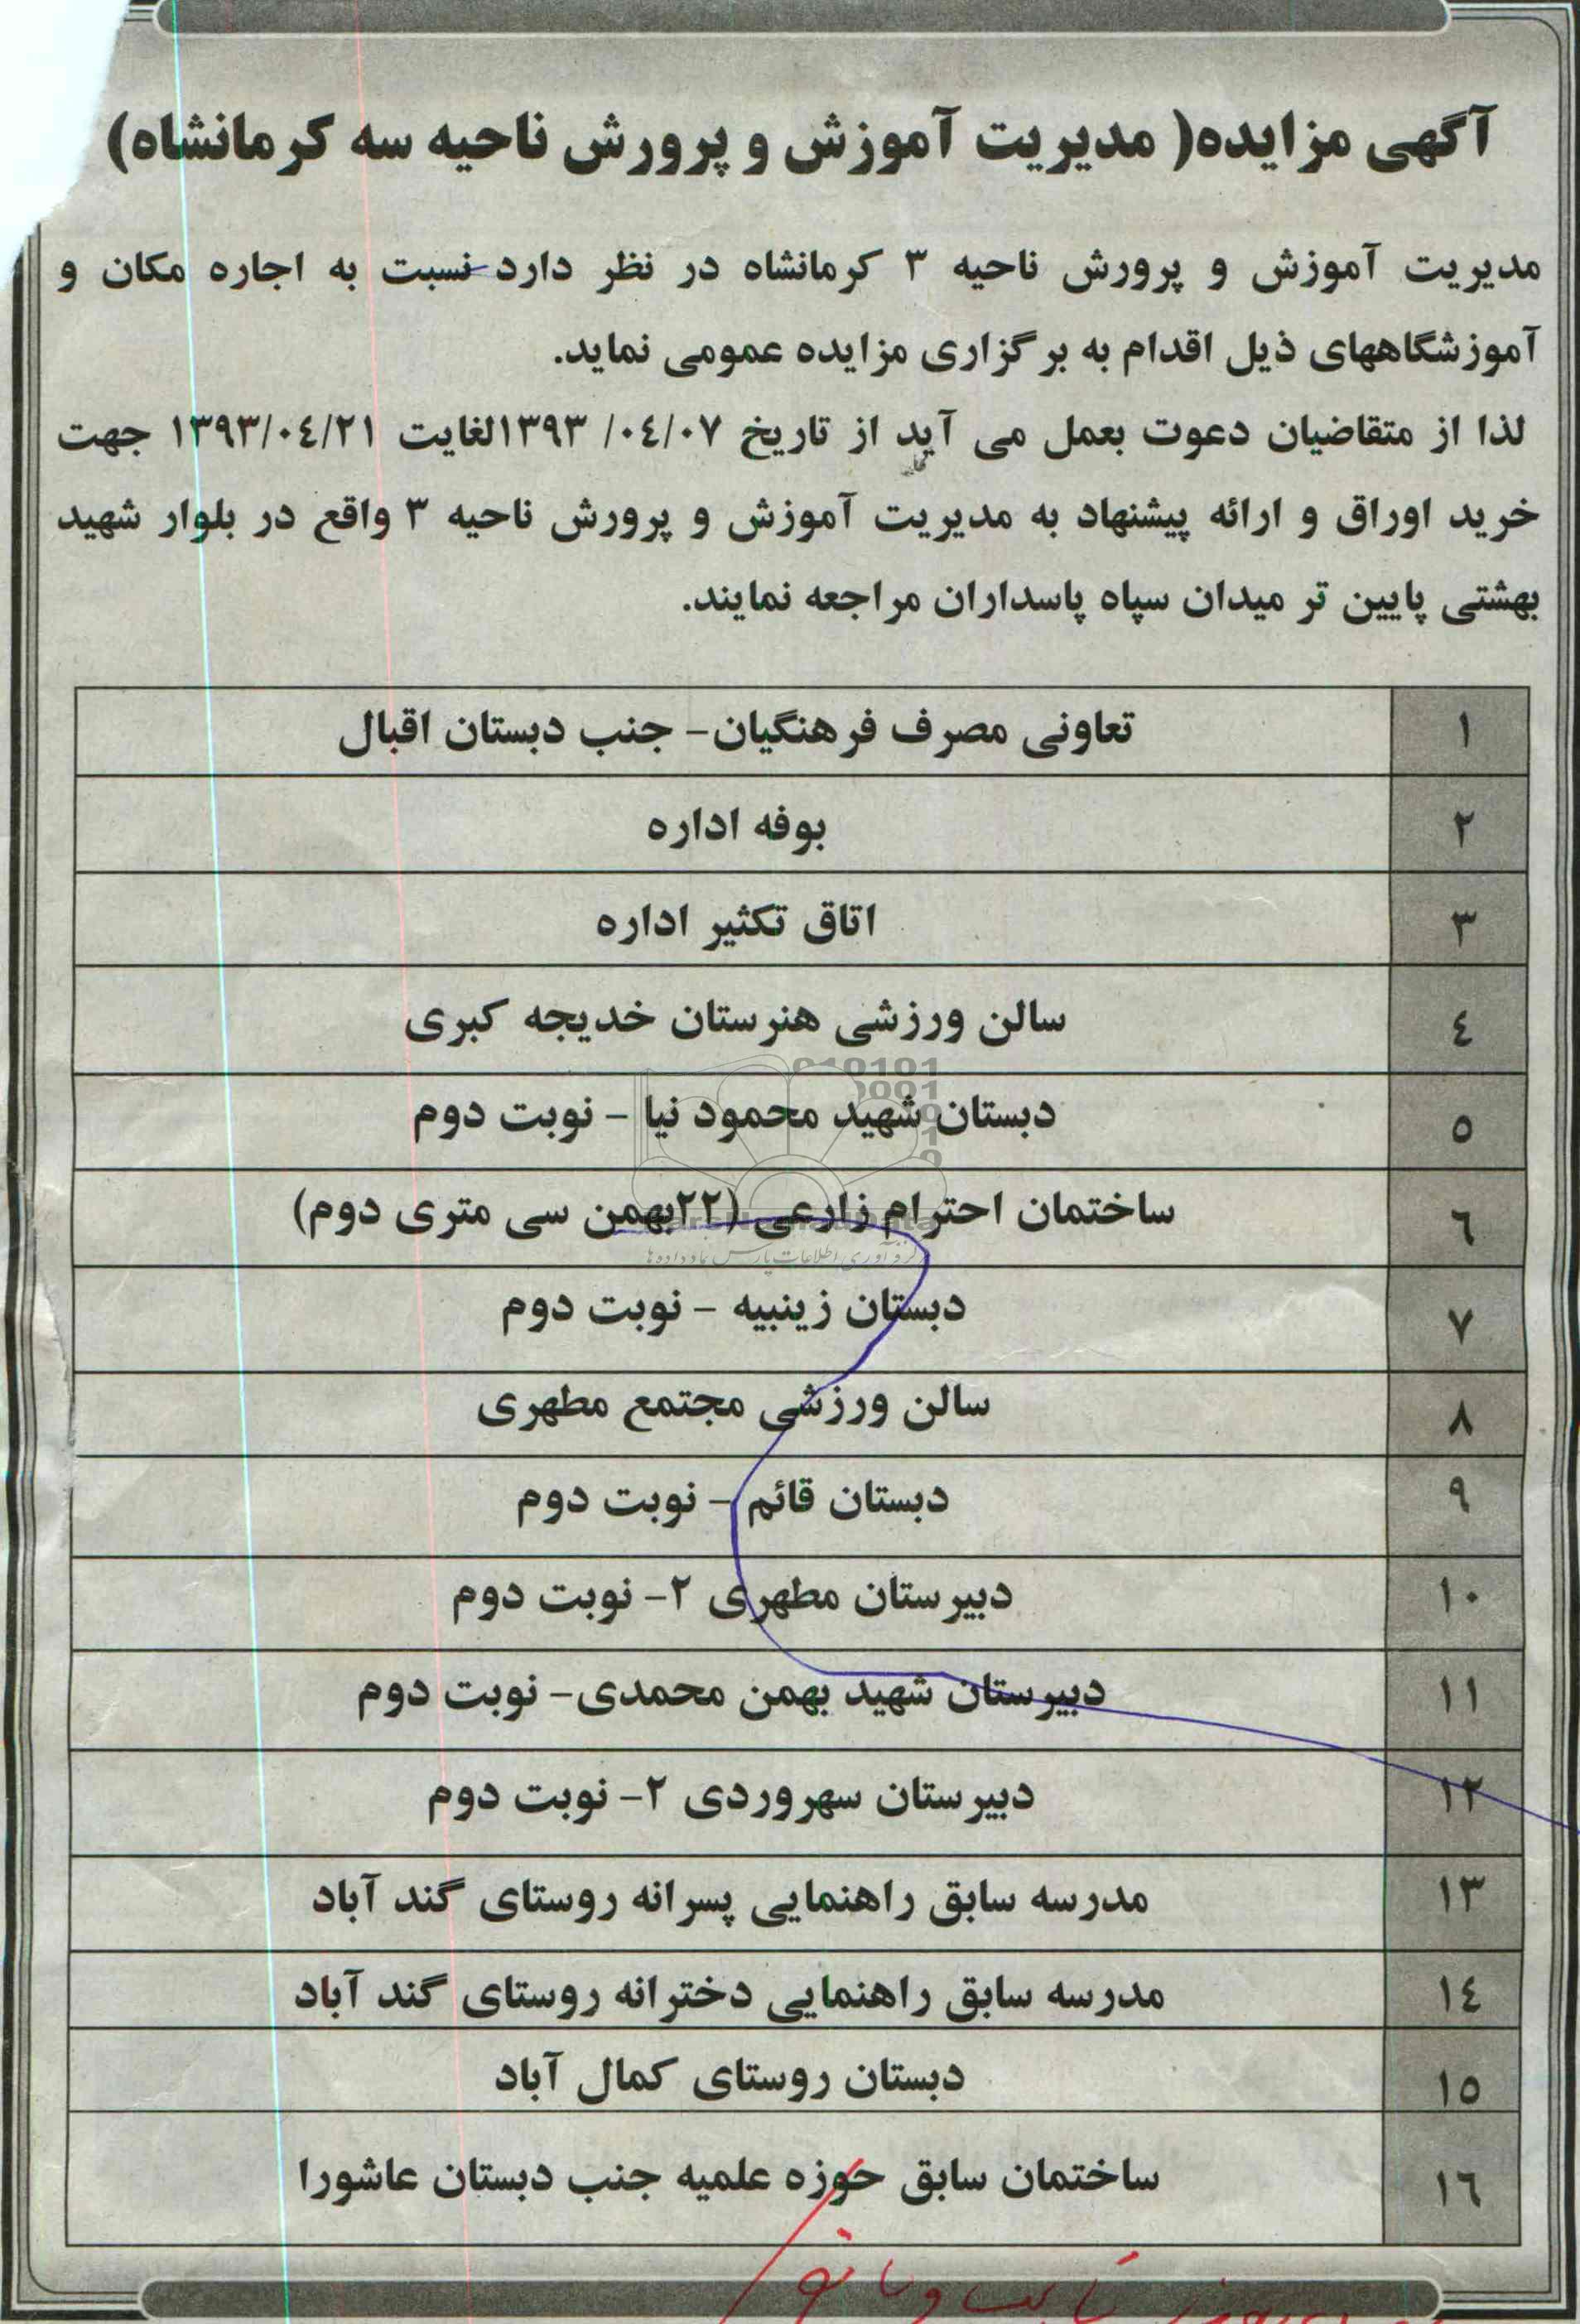 آگهی مزایده( مدیریت آموزش و پرورش ناحیه سه کرمانشاه)
مدیریت آموزش و پرورش ناحیه ۳ کرمانشاه در نظر دارد نسبت به اجاره مکان و
آموزشگاههای ذیل اقدام به برگزاری مزایده عمومی نماید.
لذا از متقاضیان دعوت بعمل می آید از تاریخ ۰۴/۰۷/ ۱۳۹۳لغایت ۱۳۹۳/۰۴/۲۱ جهت
خرید اوراق و ارائه پیشنهاد به مدیریت آموزش و پرورش ناحیه ۳ واقع در بلوار شهید
بهشتی پایین تر میدان سپاه پاسداران مراجعه نمایند.
۱ تعاونی مصرف فرهنگیان- جنب دبستان اقبال
۲ بوفه اداره
۳ اتاق تکثیر اداره
٤ سالن ورزشی هنرستان خدیجه کبری
٥ دبستان شهید محمود نیا - نوبت دوم
٦ ساختمان احترام زارعی (۲۲بهمن سی متری دوم)
۷ دبستان زینبیه - نوبت دوم
۸ سالن ورزشی مجتمع مطهری
۹ دبستان قائم - نوبت دوم
۱۰ دبیرستان مطهری ۲- نوبت دوم
۱۱ دبیرستان شهید بهمن محمدی- نوبت دوم
۱۲ دبیرستان سهروردی ۲- نوبت دوم
۱۳ مدرسه سابق راهنمایی پسرانه روستای گند آباد
۱٤ مدرسه سابق راهنمایی دخترانه روستای گند آباد
۱٥ دبستان روستای کمال آباد
۱٦ ساختمان سابق حوزه علمیه جنب دبستان عاشورا